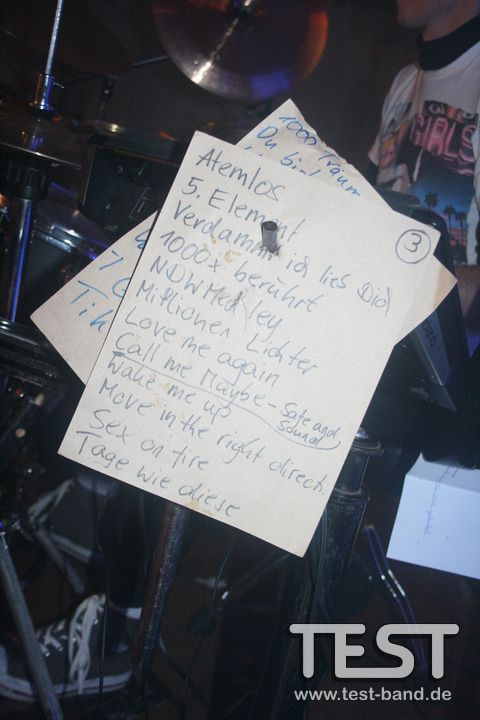 1000 Träum
Du bi
Atemlos
5. Element
Verdammt ich lieb Dich
3
1000x berührt
NDW Medley
Millionen Lichter
Love me again
Call me Maybe - Safe and Sound
Wake me up
Move in the right direct.
Sex on fire
Tage wie diese
7
Tik
GIRLS
TEST
www.test-band.de